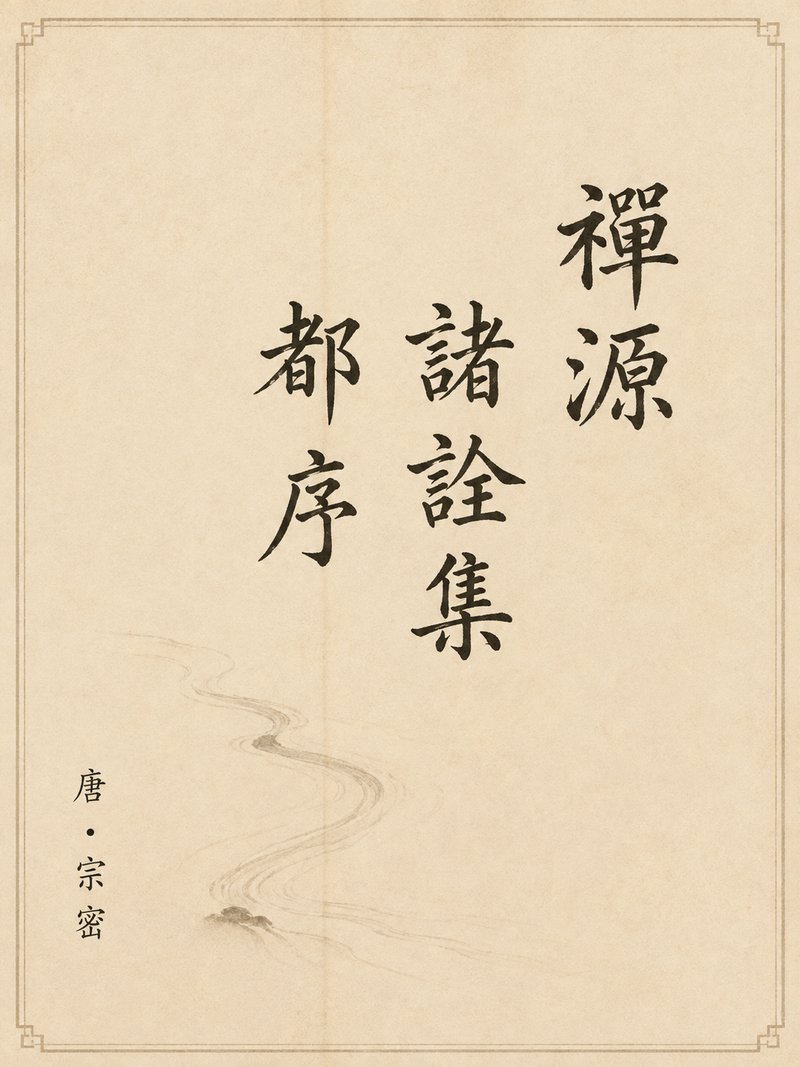 禪源
諸詮集
都序
唐・宗密